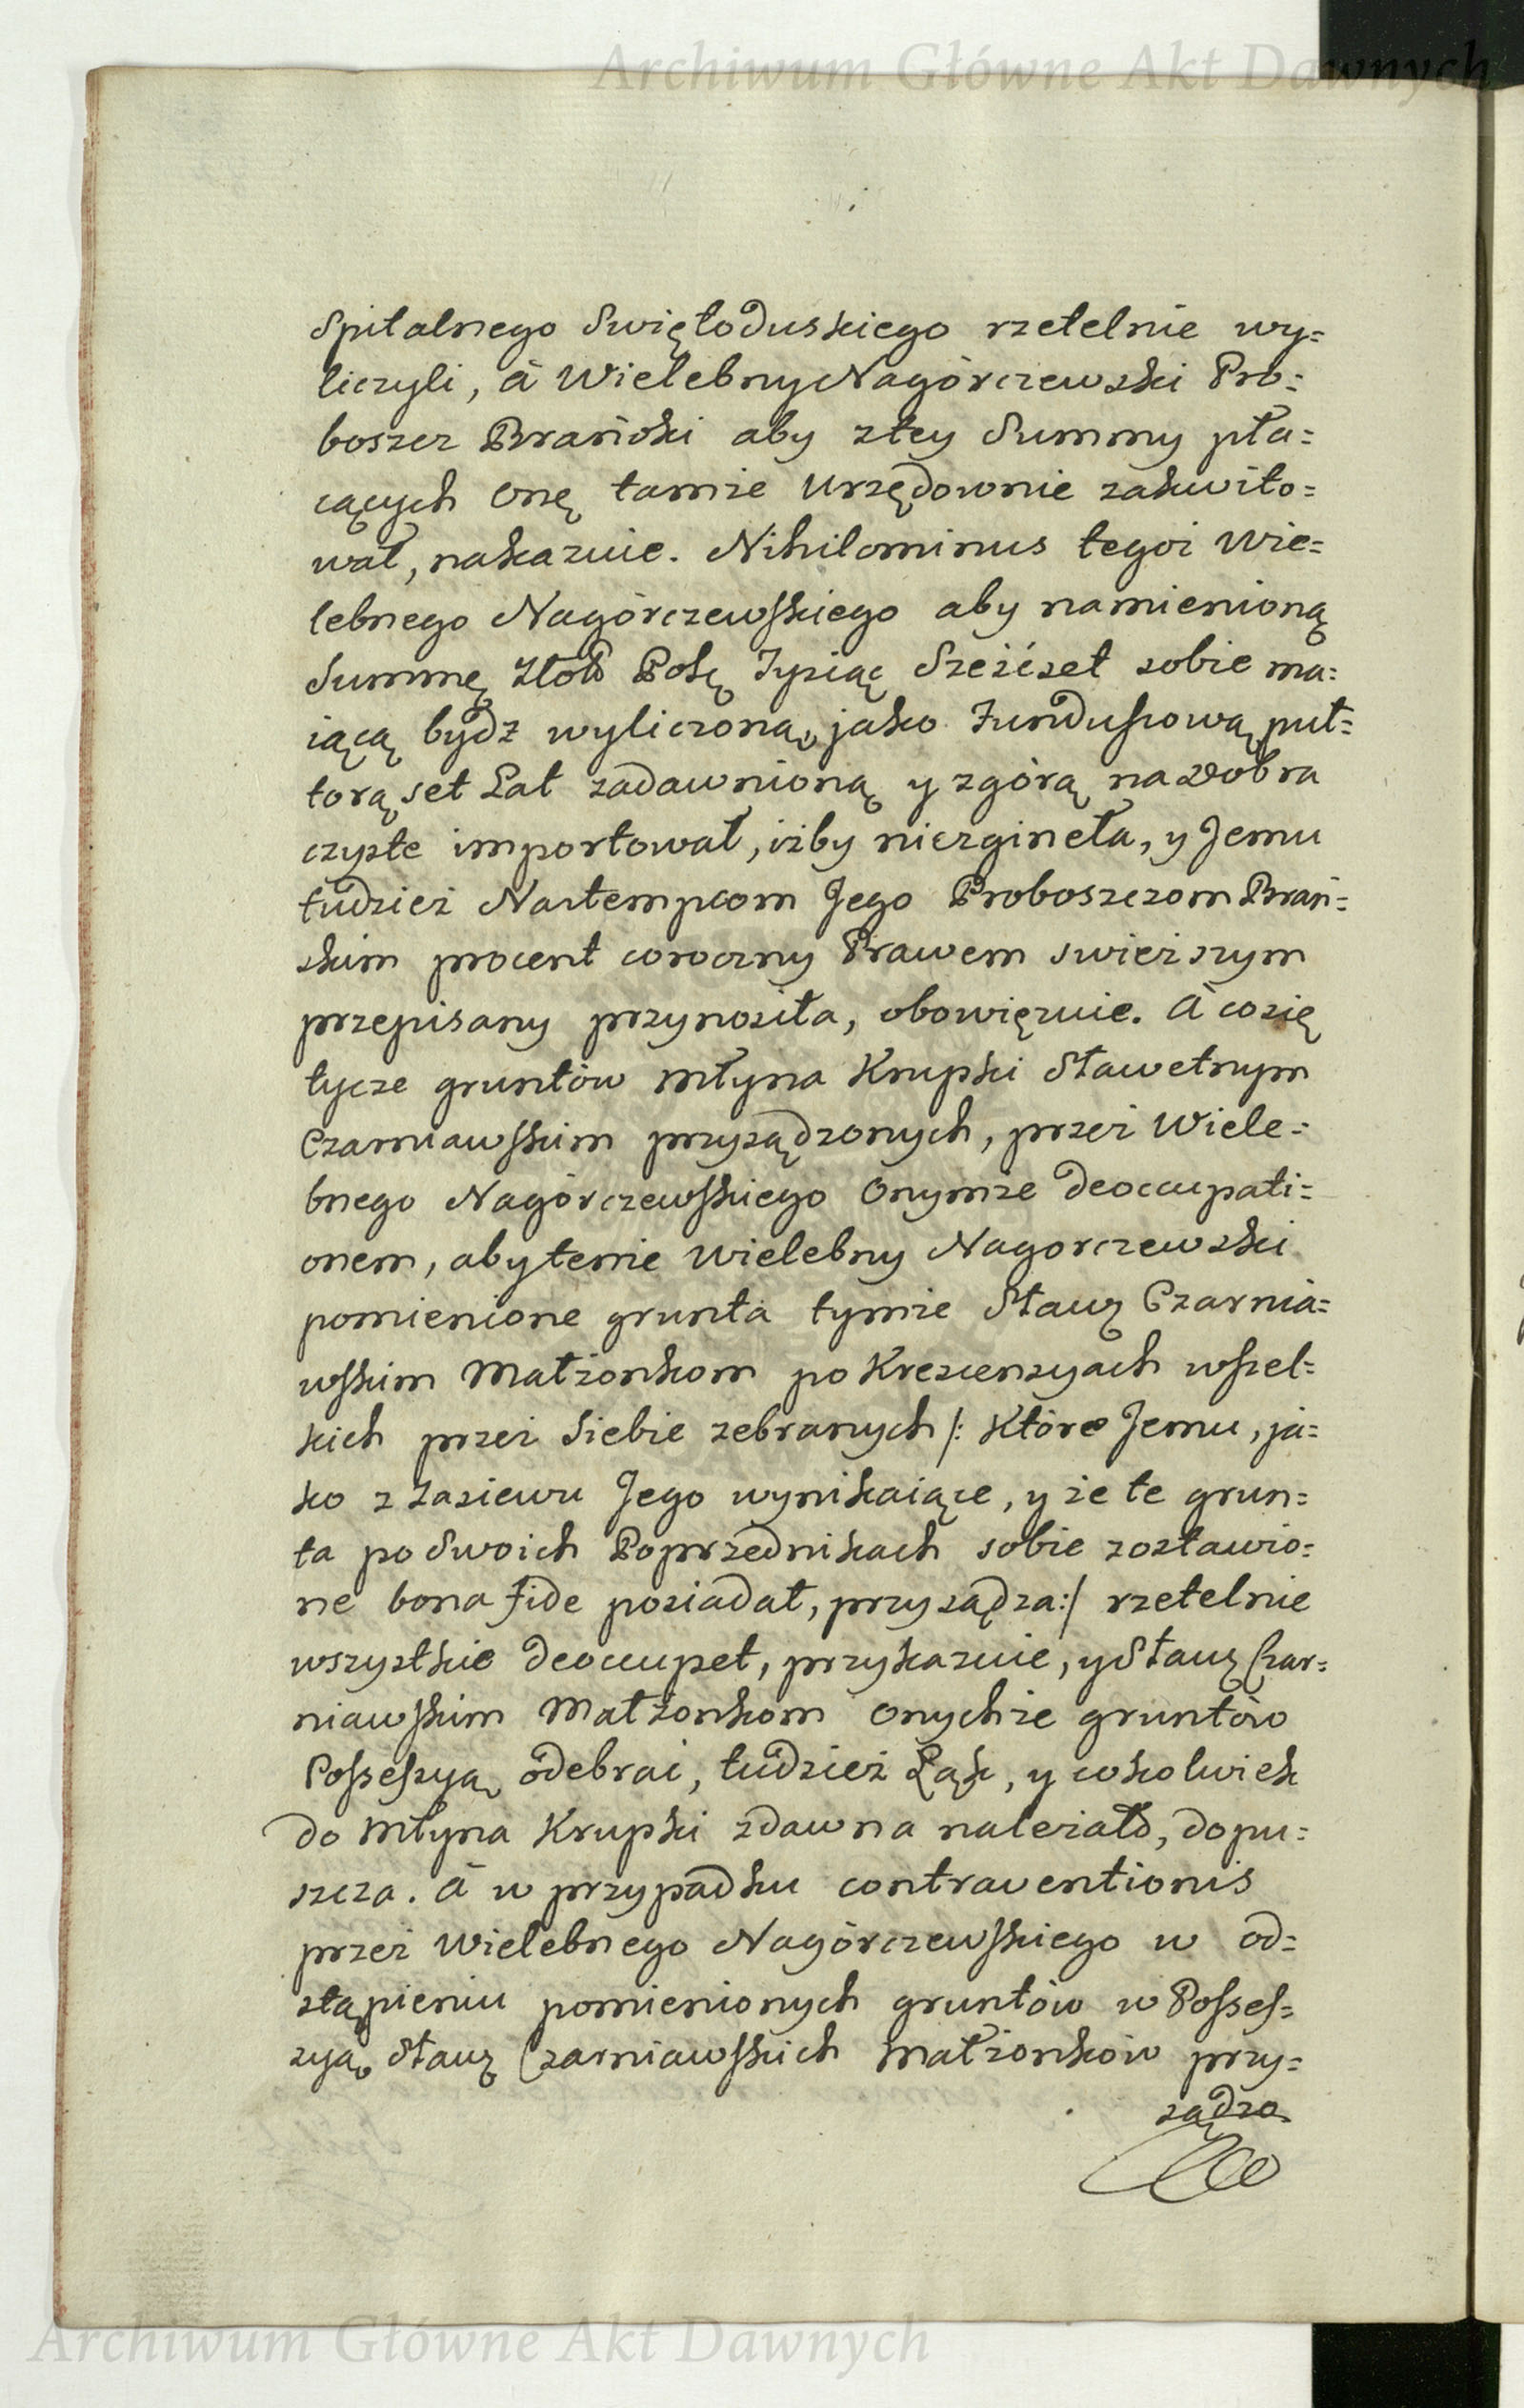 Archiwum Główne Akt Dawnych
Spitalnego Swiętoduskiego rzetelnie wy=
liczyli, á Wielebny Nagórczewski Pro=
boszcz Brański aby ztey Summy pła=
cących onę tamże Urzędownie zakwito=
wał, nakazuie. Nihilominus tegoż Wie=
lebnego Nagórczewskiego aby namienioną
Summę Złotď Polę Tysiąc Sześćset sobie ma=
iącą bydź wyliczoną, jako Funduszową puł=
torą set Lat zadawnioną y zgórą na Dobra
czyste importował, iżby niezgineła, y Jemu
tudzież Nastempcom Jego Proboszczom Brań=
skim procent coroczny Prawem swieższym
przepisany przynosiła, obowięzuie. A cosię
tycze gruntów młyna Krupki Sławetnym
Czarniawskim przysądzonych, przez Wiele=
bnego Nagórczewskiego Onymże deoccupati=
onem, aby tenże Wielebny Nagorczewski
pomienione grunta tymże Sławę Czarnia=
wskim Małżonkom po Krescencyach wszel=
kich przez Siebie zebranych /: Które Jemu, ja=
ko z Zasiewu Jego wynikaiące, y że te grun=
ta po Swoich Poprzednikach sobie zostawio=
ne bona fide posiadał, przysądza:/ rzetelnie
wszystkie deoccupet, przykazuie, y Sławę Czar=
niawskim Małżonkom Onychże gruntów
Possessyą odebrać, tudzież Łąk, y cokolwiek
do młyna Krupki zdawna należało, dopu=
szcza. A w przypadku contraventionis
przez Wielebnego Nagórczewskiego w od=
stąpieniu pomienionych gruntów w Posses=
syą Sławę Czarniawskich Małżonków przy=
sądza
Archiwum Główne Akt Dawnych